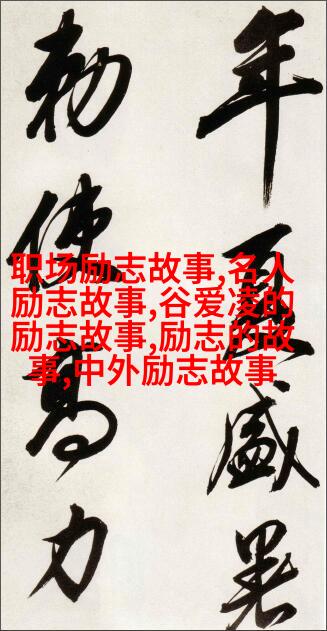 职场励志故事,名人
励志故事,谷爱凌的
励志故事,励志的故
事,中外励志故事
年夏盛暑
勅使高力